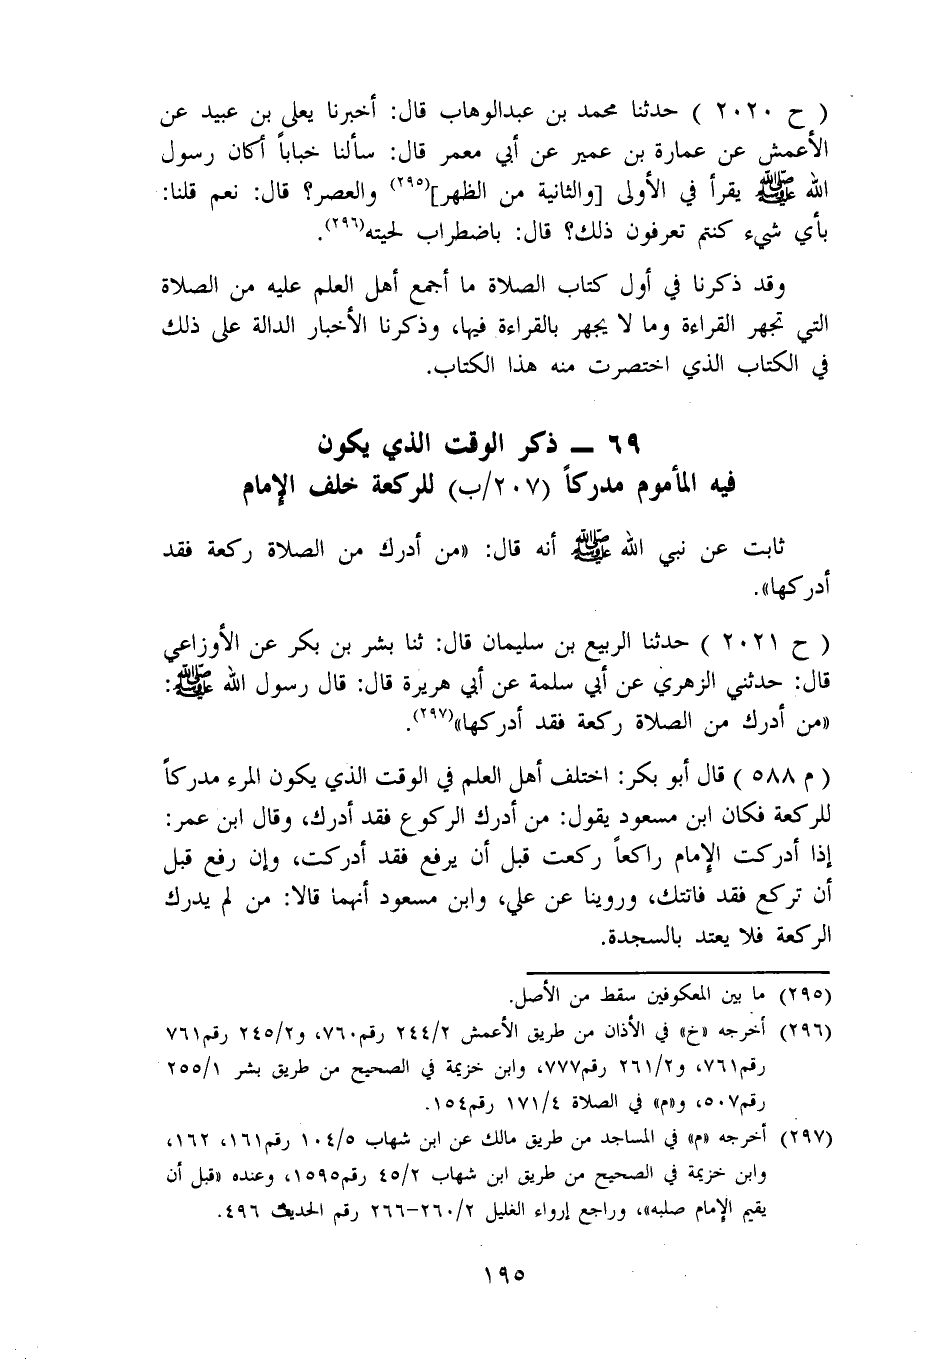 ( ح ٢٠٢٠ ) حدثنا محمد بن عبدالوهاب قال: أخبرنا يعلى بن عبيد عن
الأعمش عن عمارة بن عمير عن أبي معمر قال: سألنا خباباً أكان رسول
الله ﷺ يقرأ في الأولى [والثانية من الظهر](٢٩٥) والعصر؟ قال: نعم قلنا:
بأي شيء كنتم تعرفون ذلك؟ قال: باضطراب لحيته(٢٩٦).
وقد ذكرنا في أول كتاب الصلاة ما أجمع أهل العلم عليه من الصلاة
التي تجهر القراءة وما لا يجهر بالقراءة فيها، وذكرنا الأخبار الدالة على ذلك
في الكتاب الذي اختصرت منه هذا الكتاب.
٦٩ ــ ذكر الوقت الذي يكون
فيه المأموم مدركاً (٢٠٧/ب) للركعة خلف الإمام
ثابت عن نبي الله ﷺ أنه قال: «من أدرك من الصلاة ركعة فقد
أدركها».
( ح ٢٠٢١ ) حدثنا الربيع بن سليمان قال: ثنا بشر بن بكر عن الأوزاعي
قال: حدثني الزهري عن أبي سلمة عن أبي هريرة قال: قال رسول الله ﷺ:
«من أدرك من الصلاة ركعة فقد أدركها»(٢٩٧).
( م ٥٨٨ ) قال أبو بكر: اختلف أهل العلم في الوقت الذي يكون المرء مدركاً
للركعة فكان ابن مسعود يقول: من أدرك الركوع فقد أدرك، وقال ابن عمر:
إذا أدركت الإمام راكعاً ركعت قبل أن يرفع فقد أدركت، وإن رفع قبل
أن تركع فقد فاتتك، وروينا عن علي، وابن مسعود أنهما قالا: من لم يدرك
الركعة فلا يعتد بالسجدة.
(٢٩٥) ما بين المعكوفين سقط من الأصل.
(٢٩٦) أخرجه «خ» في الأذان من طريق الأعمش ٢٤٤/٢ رقم٧٦٠، و٢٤٥/٢ رقم٧٦١
رقم٧٦١، و٢٦١/٢ رقم٧٧٧، وابن خزيمة في الصحيح من طريق بشر ٢٥٥/١
رقم٥٠٧، و«م» في الصلاة ١٧١/٤ رقم١٥٤.
(٢٩٧) أخرجه «م» في المساجد من طريق مالك عن ابن شهاب ١٠٤/٥ رقم١٦١، ١٦٢،
وابن خزيمة في الصحيح من طريق ابن شهاب ٤٥/٢ رقم١٥٩٥، وعنده «قبل أن
يقيم الإمام صلبه»، وراجع إرواء الغليل ٢٦٠/٢–٢٦٦ رقم الحديث ٤٩٦.
١٩٥